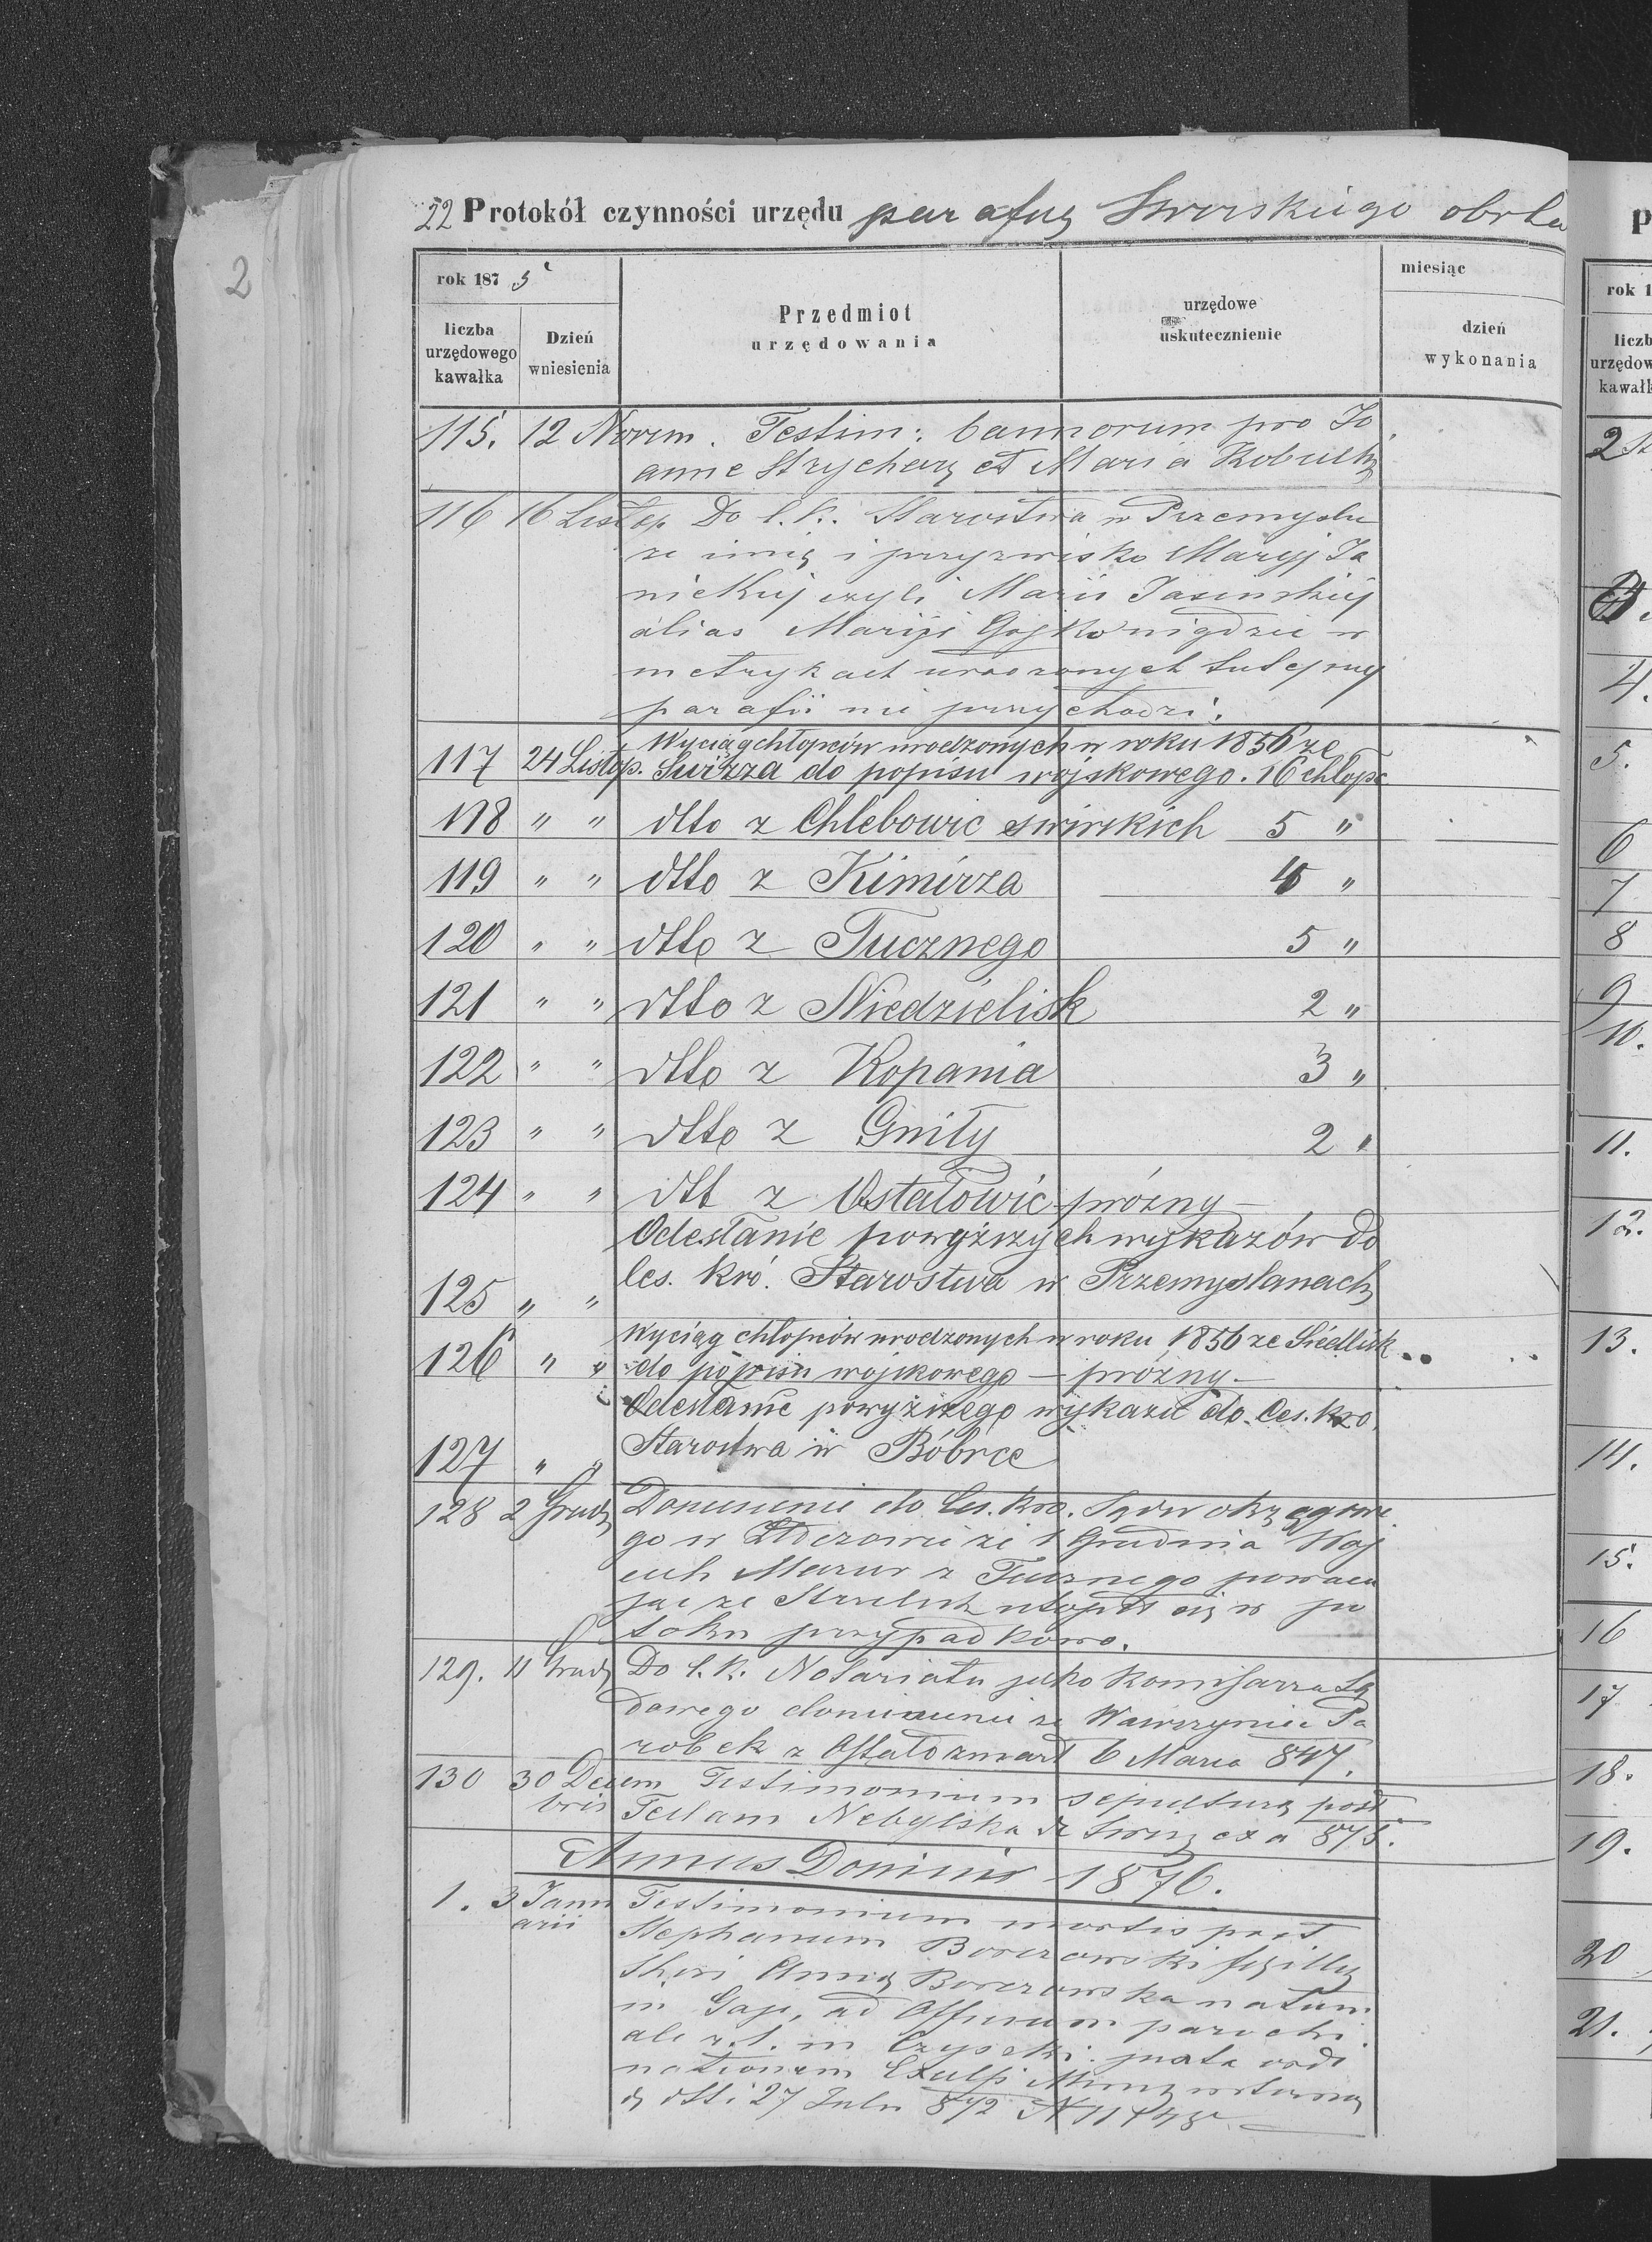 22 Protokół czynności urzędu parafii Swirskiego obrła
rok 1875
miesiąc
liczba urzędowego kawałka
Dzień wniesienia
Przedmiot urzędowania
urzędowe uskutecznienie
dzień wykonania
115. 12 Novem. Testim: bannorum pro Jo
anne Strycharz et Maria Kobulk
116 16 Listop Do C.K. Starostwa w Przemyslu
ze imię i przyzwisko Maryj Ja
nickiej czyli Marii Jasinskiej
alias Maryi Gojko nigdzie w
metrykach urodzonych tutejszej
parafii nie przychodzi.
117 24 Listop. Wyciąg chłopców urodzonych w roku 1856 ze
Swirza do popisu wojskowego. 16 chłopc
118 " " dtto z Chlebowic swirskich 5 "
119 " " dtto z Kimirza 4 "
120 " " dtto z Tucznego 5 "
121 " " dtto z Niedzielisk 2 "
122 " " dtto z Kopania 3 "
123 " " dtto z Gniły 2 "
124 " " dtt z Ostałowic próżny —
Odesłanie powyższych wykazów do
125 " " Ces. kró. Starostwa w Przemyslanach
Wyciąg chłopców urodzonych w roku 1856 ze Siedlisk
126 " " do popisu wojskowego — próżny —
Odesłanie powyższego wykazu do Ces. kro.
127 " " Starostwa w Bóbrce
128 2 Grud Doniesienie do Ces. kro. Sądu okręgowe
go w że 1 Grudnia Woj
ciech Mazur z Tucznego powaca
jąc ze Strzelisk utopił się w po
toku przypadkowo.
129. 11 Grud Do C.K. Notariatu jako Komisarza Są
dowego doniesienie że Wawrzyniec Pa
robek z Ostało zmarł 6 Marca 847.
130 30 Decem Testimonium sepultury post
bris Teclam Nebylska de Swirz ex a 875.
Annus Domini 1876.
1. 3 Janu Testimonium mortis post
arii Stephanum Borczowski
Anna Borczowska natum
in Gaje, ad Officium parochi
ale r.l. in Czyszki juxta ordi
nationem
dtti 27 Julii 872 N 11448
2